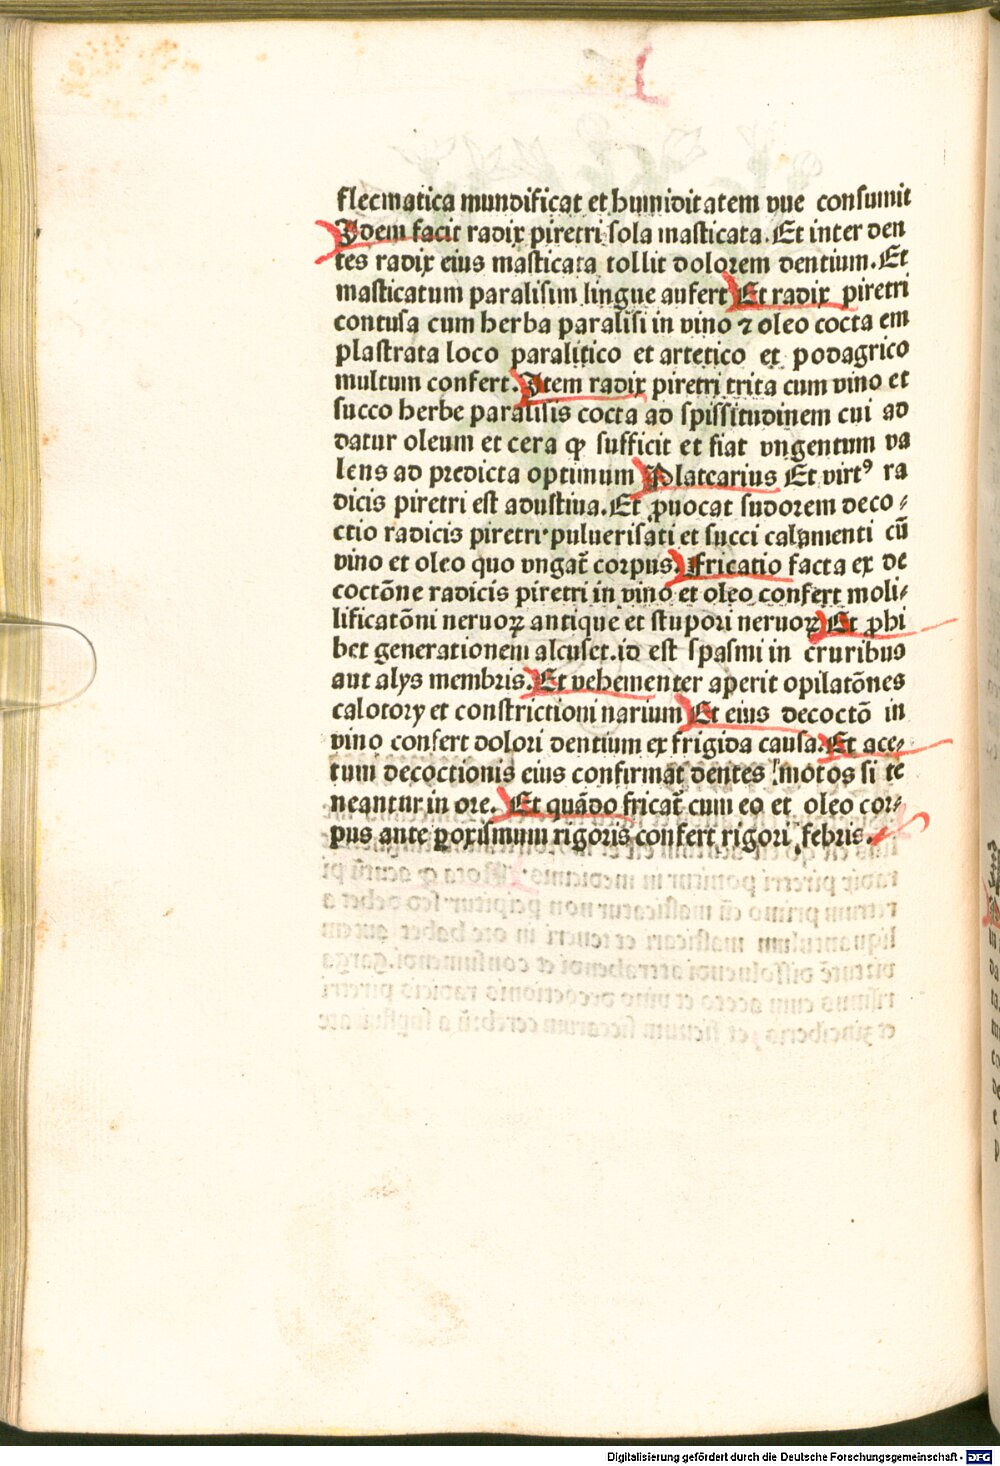 flecmatica mundificat et humiditatem vue consumit
Idem facit radix piretri sola masticata. Et inter den
tes radix eius masticata tollit dolorem dentium. Et
masticatum paralisim lingue aufert Et radix piretri
contusa cum herba paralisi in vino ⁊ oleo cocta em
plastrata loco paralitico et artetico et podagrico
multum confert. Item radix piretri trita cum vino et
succo herbe paralisis cocta ad spissitudinem cui ad
datur oleum et cera ꝙ sufficit et fiat vngentum va
lens ad predicta optimum Platearius Et virtꝰ ra
dicis piretri est adustiua. Et ꝓuocat sudorem deco⸗
ctio radicis piretri puluerisati et succi calamenti cū
vino et oleo quo vngat̄ corpus. Fricatio facta ex de
coctōne radicis piretri in vino et oleo confert moli⸗
lificatōni neruoꝝ antique et stupori neruoꝝ Et ꝓhi
bet generationem alcuset. id est spasmi in cruribus
aut alys membris. Et vehementer aperit opilatōnes
calotory et constrictioni narium Et eius decoctō in
vino confert dolori dentium ex frigida causa. Et ace⸗
tum decoctionis eius confirmat dentes motos si te
neantur in ore. Et quādo fricat̄ cum eo et oleo cor⸗
pus ante ꝑoxismum rigoris confert rigori febris.
Digitalisierung gefördert durch die Deutsche Forschungsgemeinschaft - DFG